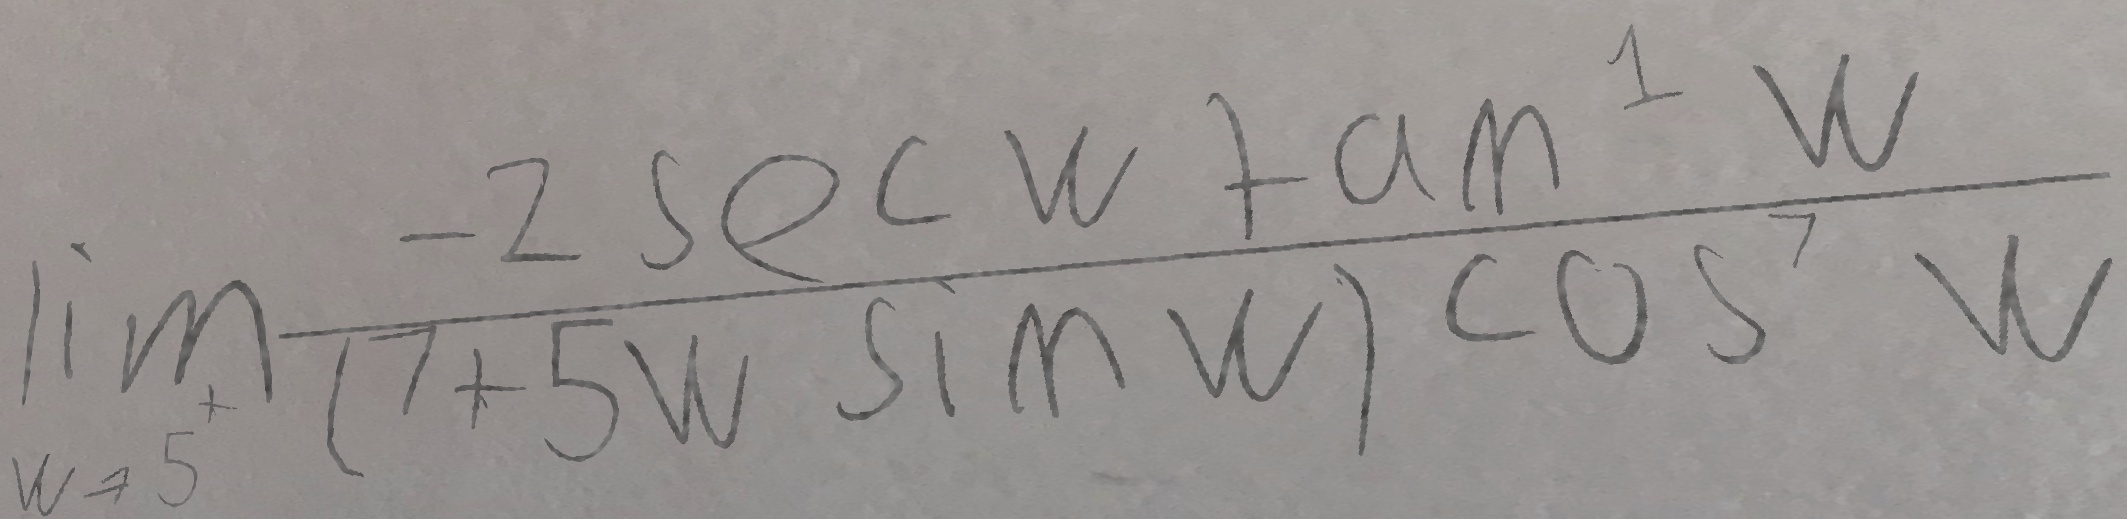 \lim_{w \to 5^+} \frac{-2 \sec w \tan^1 w}{(7 + 5w \sin w) \cos^7 w}